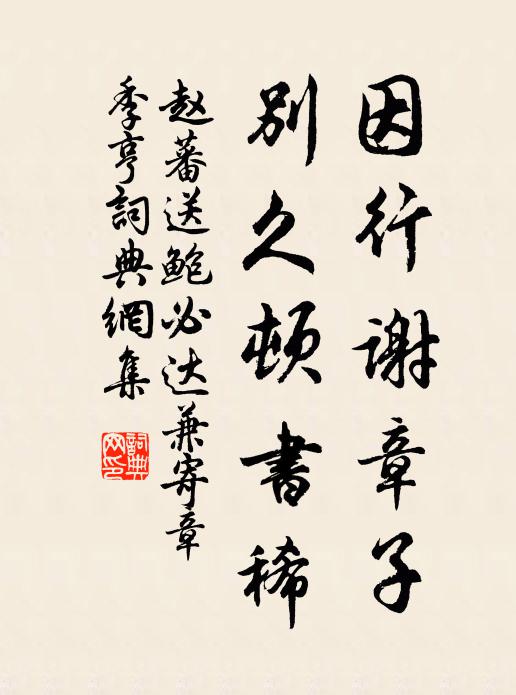 因行谢章子
别久顿书稀
赵蕃送鲍必达兼寄章
季亨詞典網集
詞典网印